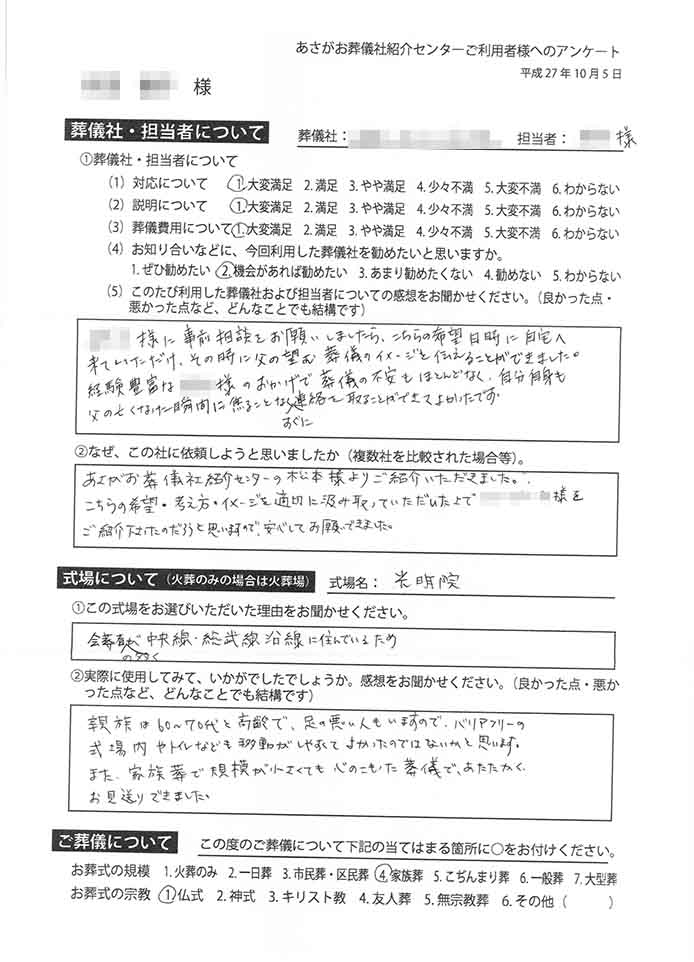 あさがお葬儀社紹介センターご利用者様へのアンケート
平成27年10月5日
様
葬儀社・担当者について 葬儀社: 担当者: 様
①葬儀社・担当者について
(1) 対応について 1.大変満足 2.満足 3.やや満足 4.少々不満 5.大変不満 6.わからない
(2) 説明について 1.大変満足 2.満足 3.やや満足 4.少々不満 5.大変不満 6.わからない
(3) 葬儀費用について 1.大変満足 2.満足 3.やや満足 4.少々不満 5.大変不満 6.わからない
(4) お知り合いなどに、今回利用した葬儀社を勧めたいと思いますか。
1.ぜひ勧めたい 2.機会があれば勧めたい 3.あまり勧めたくない 4.勧めない 5.わからない
(5) このたび利用した葬儀社および担当者についての感想をお聞かせください。(良かった点・
悪かった点など、どんなことでも結構です)
様に事前相談をお願いしましたら、こちらの希望日時に自宅へ
来ていただけ、その時に父の望む葬儀のイメージを伝えることができました。
経験豊富な 様のおかげで葬儀の不安もほとんどなく、自分自身も
父の亡くなった瞬間に焦ることなくすぐに連絡を取ることができてよかったです。
②なぜ、この社に依頼しようと思いましたか(複数社を比較された場合等)。
あさがお葬儀社紹介センターの松本様よりご紹介いただきました。
こちらの希望・考え方・イメージを適切に汲み取っていただいた上で 様を
ご紹介下さったのだろうと思いますので、安心してお願いできました。
式場について(火葬のみの場合は火葬場) 式場名: 光明院
①この式場をお選びいただいた理由をお聞かせください。
会葬者の多くが中央線・総武線沿線に住んでいるため
②実際に使用してみて、いかがでしたでしょうか。感想をお聞かせください。(良かった点・悪か
った点など、どんなことでも結構です)
親族は60〜70代と高齢で、足の悪い人もいますので、バリアフリーの
式場内やトイレなども移動がしやすくてよかったのではないかと思います。
また、家族葬で規模が小さくても心のこもった葬儀で、あたたかく
お見送りできました。
ご葬儀について この度のご葬儀について下記の当てはまる箇所に○をお付けください。
お葬式の規模 1.火葬のみ 2.一日葬 3.市民葬・区民葬 4.家族葬 5.こぢんまり葬 6.一般葬 7.大型葬
お葬式の宗教 1.仏式 2.神式 3.キリスト教 4.友人葬 5.無宗教葬 6.その他( )